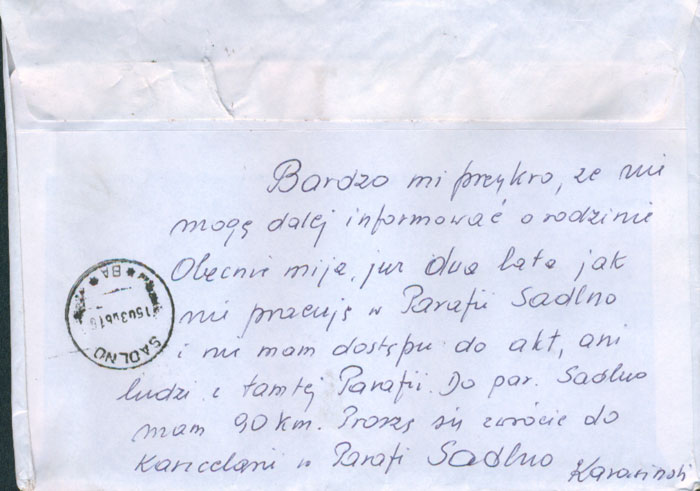 Bardzo mi przykro, że nie
mogę dalej informować o rodzinie
Obęcnie mija już dwa lata jak
nie pracuję w Parafii Sadlno
i nie mam dostępu do akt, ani
ludzi z tamtej Parafii. Do par. Sadlno
mam 90 km. Proszę się zwrócić do
Kancelarii w Parafi Sadlno
SADLNO
BA